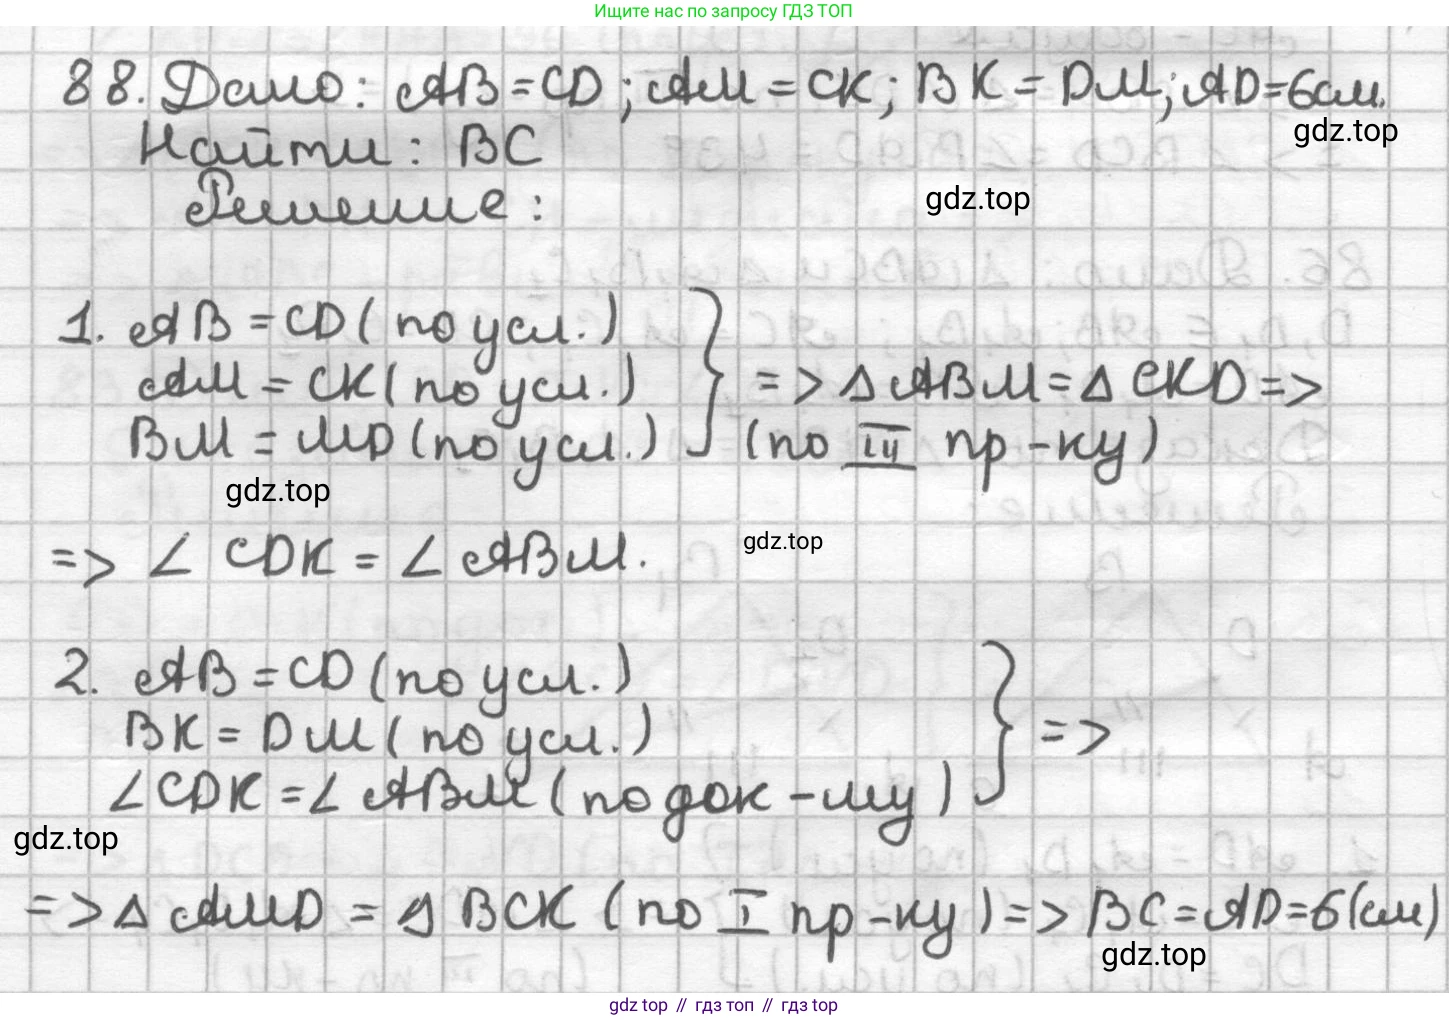 Ищите нас по запросу ГДЗ ТОП
88. Дано: AB = CD; AM = CK; BK = DM; AD = 6см.
gdz.top
Найти: BC
gdz.top
Решение:
1. AB = CD (по усл.)
AM = CK (по усл.)
BM = MD (по усл.)
=> Δ ABM = Δ CKD =>
(по III пр-ку)
gdz.top
gdz.top
=> ∠ CDK = ∠ ABM.
2. AB = CD (по усл.)
BK = DM (по усл.)
∠CDK = ∠ ABM (по док-му)
=>
gdz.top
=> Δ AMD = Δ BCK (по I пр-ку) => BC = AD = 6 (см)
gdz.top
gdz top // гдз топ // гдз top